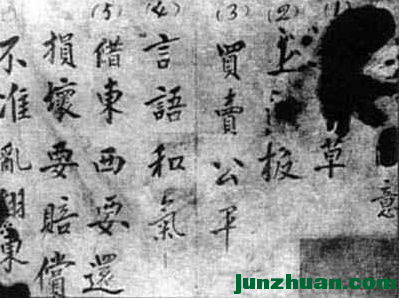 意
(1)草
(2)上板
(3)買賣公平
(4)言語和氣
(5)借東西要還
損壞要賠償
不准亂翻東
junzhuan.com